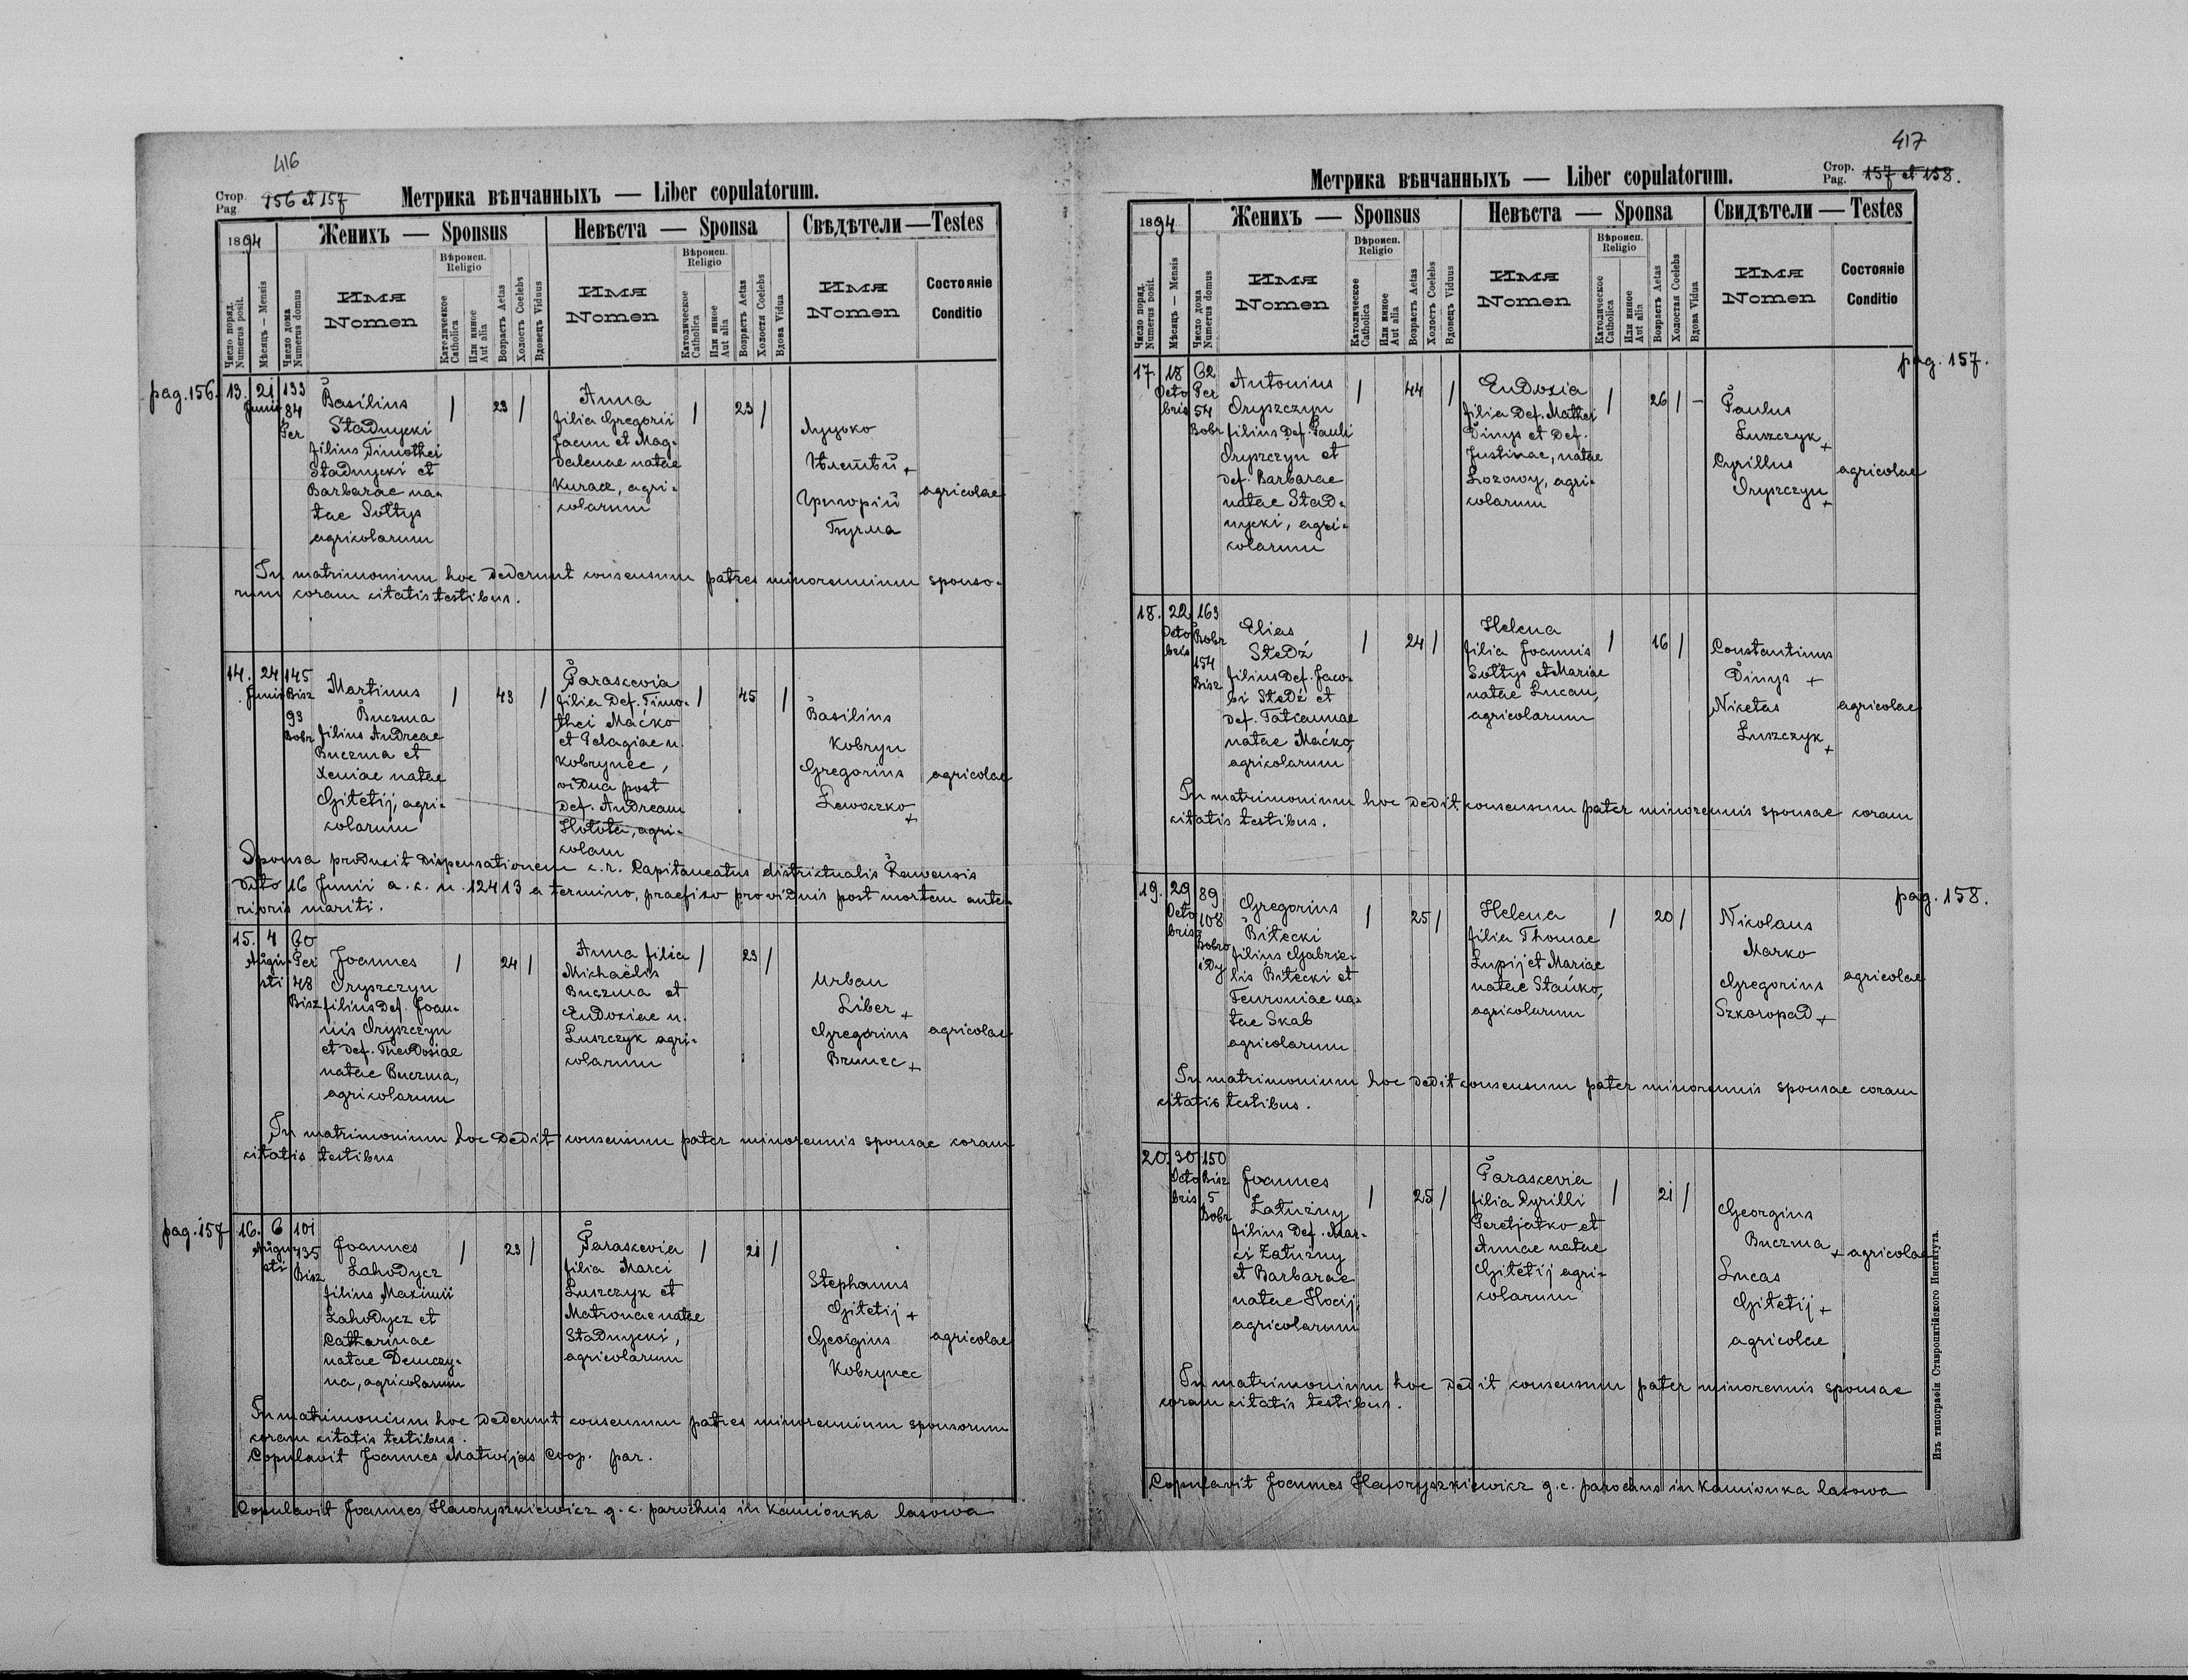 416
Стор.
Pag.
156 et 157
Метрика вѣнчанныхъ — Liber copulatorum.
1894
Женихъ — Sponsus
Невѣста — Sponsa
Свѣдѣтели — Testes
Число поряд.
Numerus posit.
Мѣсяцъ — Mensis
Число дома
Numerus domus
Имя
Nomen
Вѣроисп.
Religio
Католическое
Catholica
Или иное
Aut alia
Возрастъ Aetas
Холостъ Coelebs
Вдовецъ Viduus
Имя
Nomen
Вѣроисп.
Religio
Католическое
Catholica
Или иное
Aut alia
Возрастъ Aetas
Холостя Coelebs
Вдова Vidua
Имя
Nomen
Состояніе
Conditio
pag. 156.
13.
21
Junii
133
84
Per
Basilius
Stadnycki
filius Timothei
Stadnycki et
Barbarae na-
tae Sołtys
agricolarum
/
23
/
Anna
filia Gregorii
Jacun et Mag-
dalenae natae
Kuracz, agri-
colarum
/
23
/
Григорій
agricolae
In matrimonium hoc dederunt consensum patres minorennium sponso-
rum coram citatis testibus.
14.
24
Junii
145
Bisz
93
Bobr
Martinus
Buczma
filius Andreae
Buczma et
Xeniae natae
Gitelij, agri-
colarum
/
43
/
Parascevia
filia Def. Timo-
thei Maćko
et Pelagiae n.
Kobrynec,
vidua post
Def. Andream
Hołota, agri-
colam
/
45
/
Basilius
Kobryn
Gregorius
Lewoczko
+
agricolae
Sponsa produxit dispensationem c. r. Capitaneatus districtualis Ravensis
ddto 16 Junii a. c. n. 12413 a termino, praefixo pro viduis post mortem ante-
rioris mariti.
15.
4
Augu-
sti
60
Per
48
Bisz
Joannes
Oryszczyn
filius Def. Joan-
nis Oryszczyn
et Def. Theodosiae
natae Buczma,
agricolarum
/
24
/
Anna filia
Michaëlis
Buczma et
Eudoxiae n.
Luszczyk agri-
colarum
/
23
/
Urban
Liber +
Gregorius
Brunec +
agricolae
In matrimonium hoc dedit consensum pater minorennis sponsae coram
citatis testibus
pag. 157
16.
6
Augu-
sti
101
135
Bisz
Joannes
Lahodycz
filius Maximi
Lahodycz et
Catharinae
natae Demczy-
na, agricolarum
/
23
/
Parascevia
filia Marci
Luszczyk et
Matronae natae
Stadnycki,
agricolarum
/
21
/
Stephanus
Gitelij +
Georgius
Kobrynec
agricolae
In matrimonium hoc dederunt consensum patres minorennium sponsorum
coram citatis testibus.
Copulavit Joannes Matwijas Coop. par.
Copulavit Joannes Haworyszkiewicz g. c. parochus in Kamionka lasowa
417
Стор.
Pag.
157 et 158.
Метрика вѣнчанныхъ — Liber copulatorum.
1894.
Женихъ — Sponsus
Невѣста — Sponsa
Свидѣтели — Testes
Число поряд.
Numerus posit.
Мѣсяцъ — Mensis
Число дома
Numerus domus
Имя
Nomen
Вѣроисп.
Religio
Католическое
Catholica
Или иное
Aut alia
Возрастъ Aetas
Холостъ Coelebs
Вдовецъ Viduus
Имя
Nomen
Вѣроисп.
Religio
Католическое
Catholica
Или иное
Aut alia
Возрастъ Aetas
Холостая Coelebs
Вдова Vidua
Имя
Nomen
Состояніе
Conditio
pag. 157.
17.
18
Octo
bris
62
Per
54
Bobr
Antonius
Oryszczyn
filius Def. Pauli
Oryszczyn et
Def. Barbarae
natae Stad-
nycki, agri-
colarum
/
44
/
Eudoxia
filia Def. Mathei
Dinys et Def.
Justinae, natae
Lozowy, agri-
colarum
/
26
/
Paulus
Luszczyk +
Cyrillus
Oryszczyn +
agricolae
18.
22
Octo
bris
163
Bobr
154
Bisz
Elias
Stedź
filius Def. Jaco-
bi Stedź et
Def. Tatiannae
natae Maćko,
agricolarum
/
24
/
Helena
filia Joannis
Sołtys et Mariae
natae Lucan,
agricolarum
/
16
/
Constantinus
Dinys +
Nicetas
Luszczyk +
agricolae
In matrimonium hoc dedit consensum pater minorennis sponsae coram
citatis testibus.
pag. 158.
19.
29
Octo
bris
89
108
Bobro
idy
Gregorius
Biłecki
filius Gabrie-
lis Biłecki et
Fewroniae na-
tae Skab
agricolarum
/
25
/
Helena
filia Thomae
Lupij et Mariae
natae Stańko,
agricolarum
/
20
/
Nikolaus
Marko
Gregorius
Szkoropad +
agricolae
In matrimonium hoc dedit consensum pater minorennis sponsae coram
citatis testibus.
20.
30
Octo
bris
150
Bisz
5
Bobr
Joannes
Załużny
filius Def. Mar-
ci Załużny
et Barbarae
natae Hocij,
agricolarum
/
25
/
Parascevia
filia Cyrilli
Peretjatko et
Annae natae
Gitelij agri-
colarum
/
21
/
Georgius
Buczma +
Lucas
Gitelij +
agricolae
agricolae
In matrimonium hoc dedit consensum pater minorennis sponsae
coram citatis testibus.
Copulavit Joannes Haworyszkiewicz g. c. parochus in Kamionka lasowa
Изъ типографіи Ставропигійского Института.